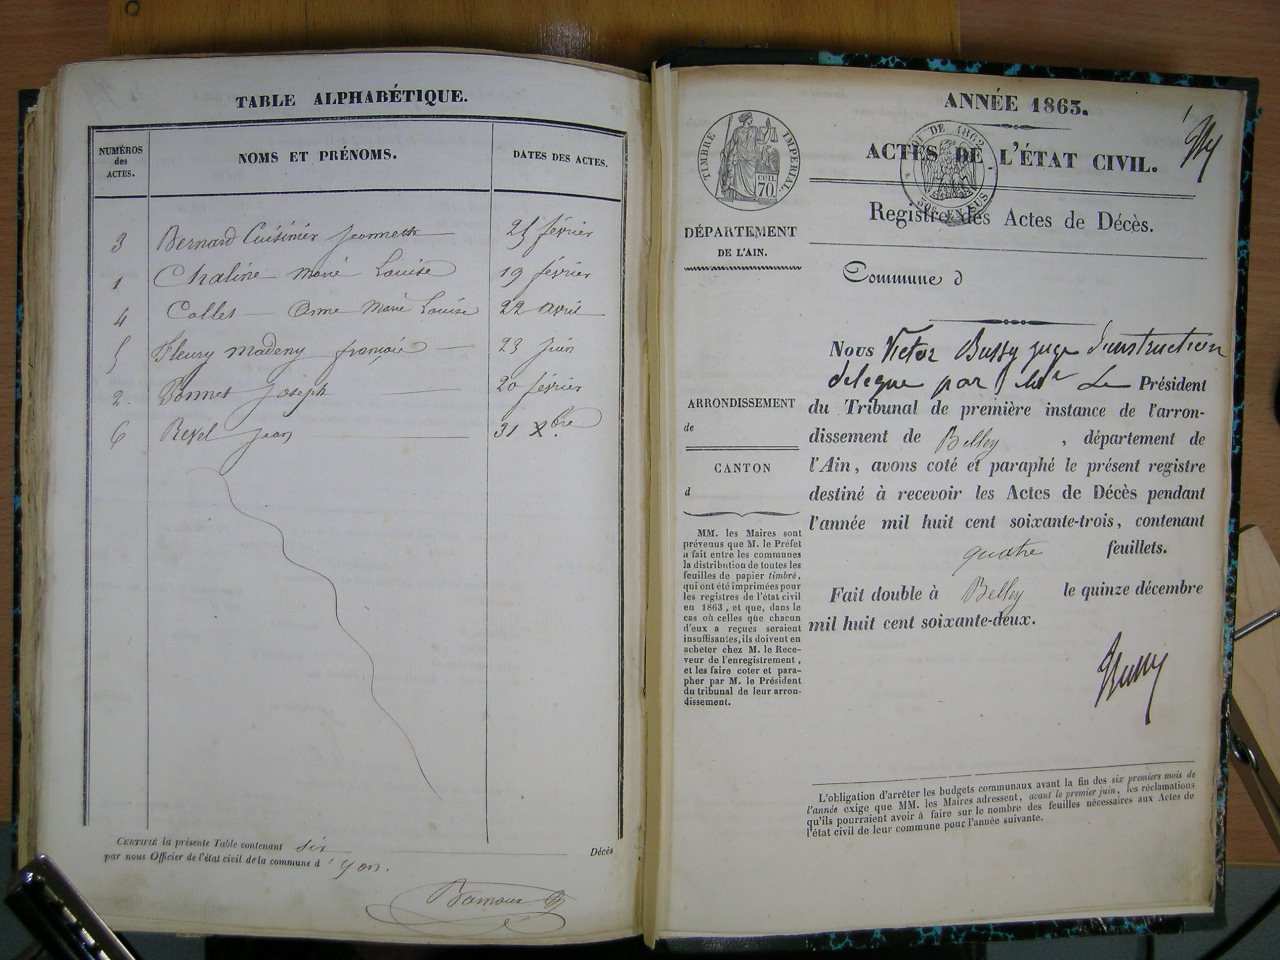 TABLE ALPHABÉTIQUE.
NUMÉROS des ACTES. NOMS ET PRÉNOMS. DATES DES ACTES.
3 Bernard Cuisinier Jeannette 21 février
1 Chaline Marie Louise 19 février
4 Collet Anne Marie Louise 22 avril
5 Fleury Madeny françoise 23 juin
2. Bonnet Joseph 20 février
6 Revel Jean 31 Xbre
CERTIFIÉ la présente Table contenant six Décès
par nous Officier de l'état civil de la commune d'yon.
ANNÉE 1863.
TIMBRE IMPERIAL.
70
DE 1862
ACTES DE L'ÉTAT CIVIL.
Registre des Actes de Décès.
DÉPARTEMENT
DE L'AIN.
Commune d
Nous Victor Bussy juge d'instruction
délégué par Mr Le Président
du Tribunal de première instance de l'arron-
dissement de Belley , département de
l'Ain, avons coté et paraphé le présent registre
destiné à recevoir les Actes de Décès pendant
l'année mil huit cent soixante-trois, contenant
quatre feuillets.
Fait double à Belley le quinze décembre
mil huit cent soixante-deux.
Bussy
ARRONDISSEMENT
de
CANTON
d
MM. les Maires sont
prévenus que M. le Préfet
a fait entre les communes
la distribution de toutes les
feuilles de papier timbré,
qui ont été imprimées pour
les registres de l'état civil
en 1863, et que, dans le
cas où celles que chacun
d'eux a reçues seraient
insuffisantes, ils doivent en
acheter chez M. le Rece-
veur de l'enregistrement,
et les faire coter et para-
pher par M. le Président
du tribunal de leur arron-
dissement.
L'obligation d'arrêter les budgets communaux avant la fin des six premiers mois de
l'année exige que MM. les Maires adressent, avant le premier juin, les réclamations
qu'ils pourraient avoir à faire sur le nombre des feuilles nécessaires aux Actes de
l'état civil de leur commune pour l'année suivante.